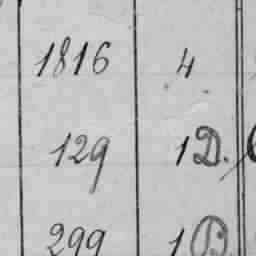 1816 4
129 1 D.
299 1 B